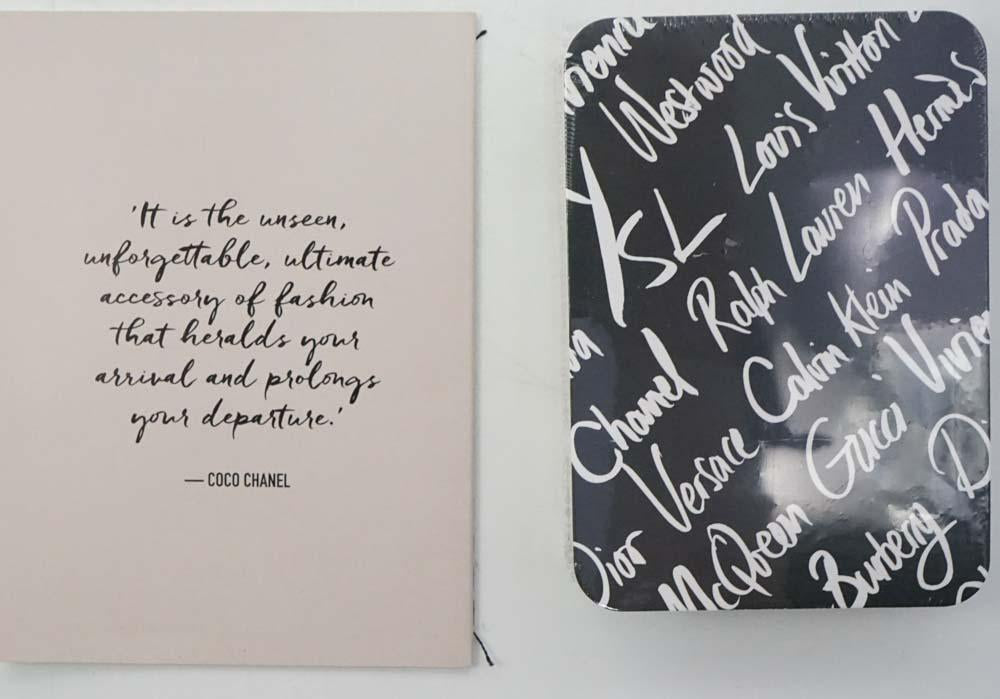 'It is the unseen,
unforgettable, ultimate
accessory of fashion
that heralds your
arrival and prolongs
your departure.'
— COCO CHANEL
Westwood
Louis Vuitton
YSL
Ralph Lauren
Hermès
Chanel
Calvin Klein
Prada
Dior
Versace
Gucci
Vivie
McQueen
Burberry
D